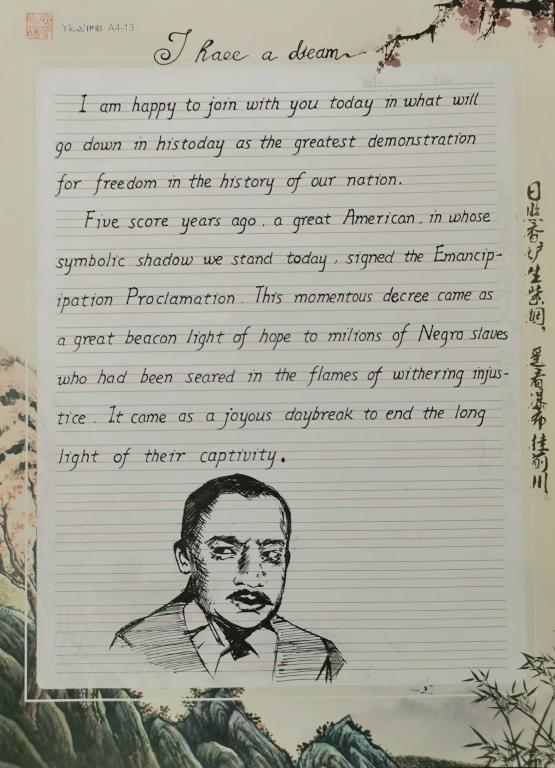 A4-13
I have a dream
I am happy to join with you today in what will
go down in histoday as the greatest demonstration
for freedom in the history of our nation.
Five score years ago, a great American, in whose
symbolic shadow we stand today, signed the Emancip-
ipation Proclamation. This momentous decree came as
a great beacon light of hope to milions of Negro slaves
who had been seared in the flames of withering injus-
tice. It came as a joyous daybreak to end the long
light of their captivity.
日照香炉生紫烟，遥看瀑布挂前川